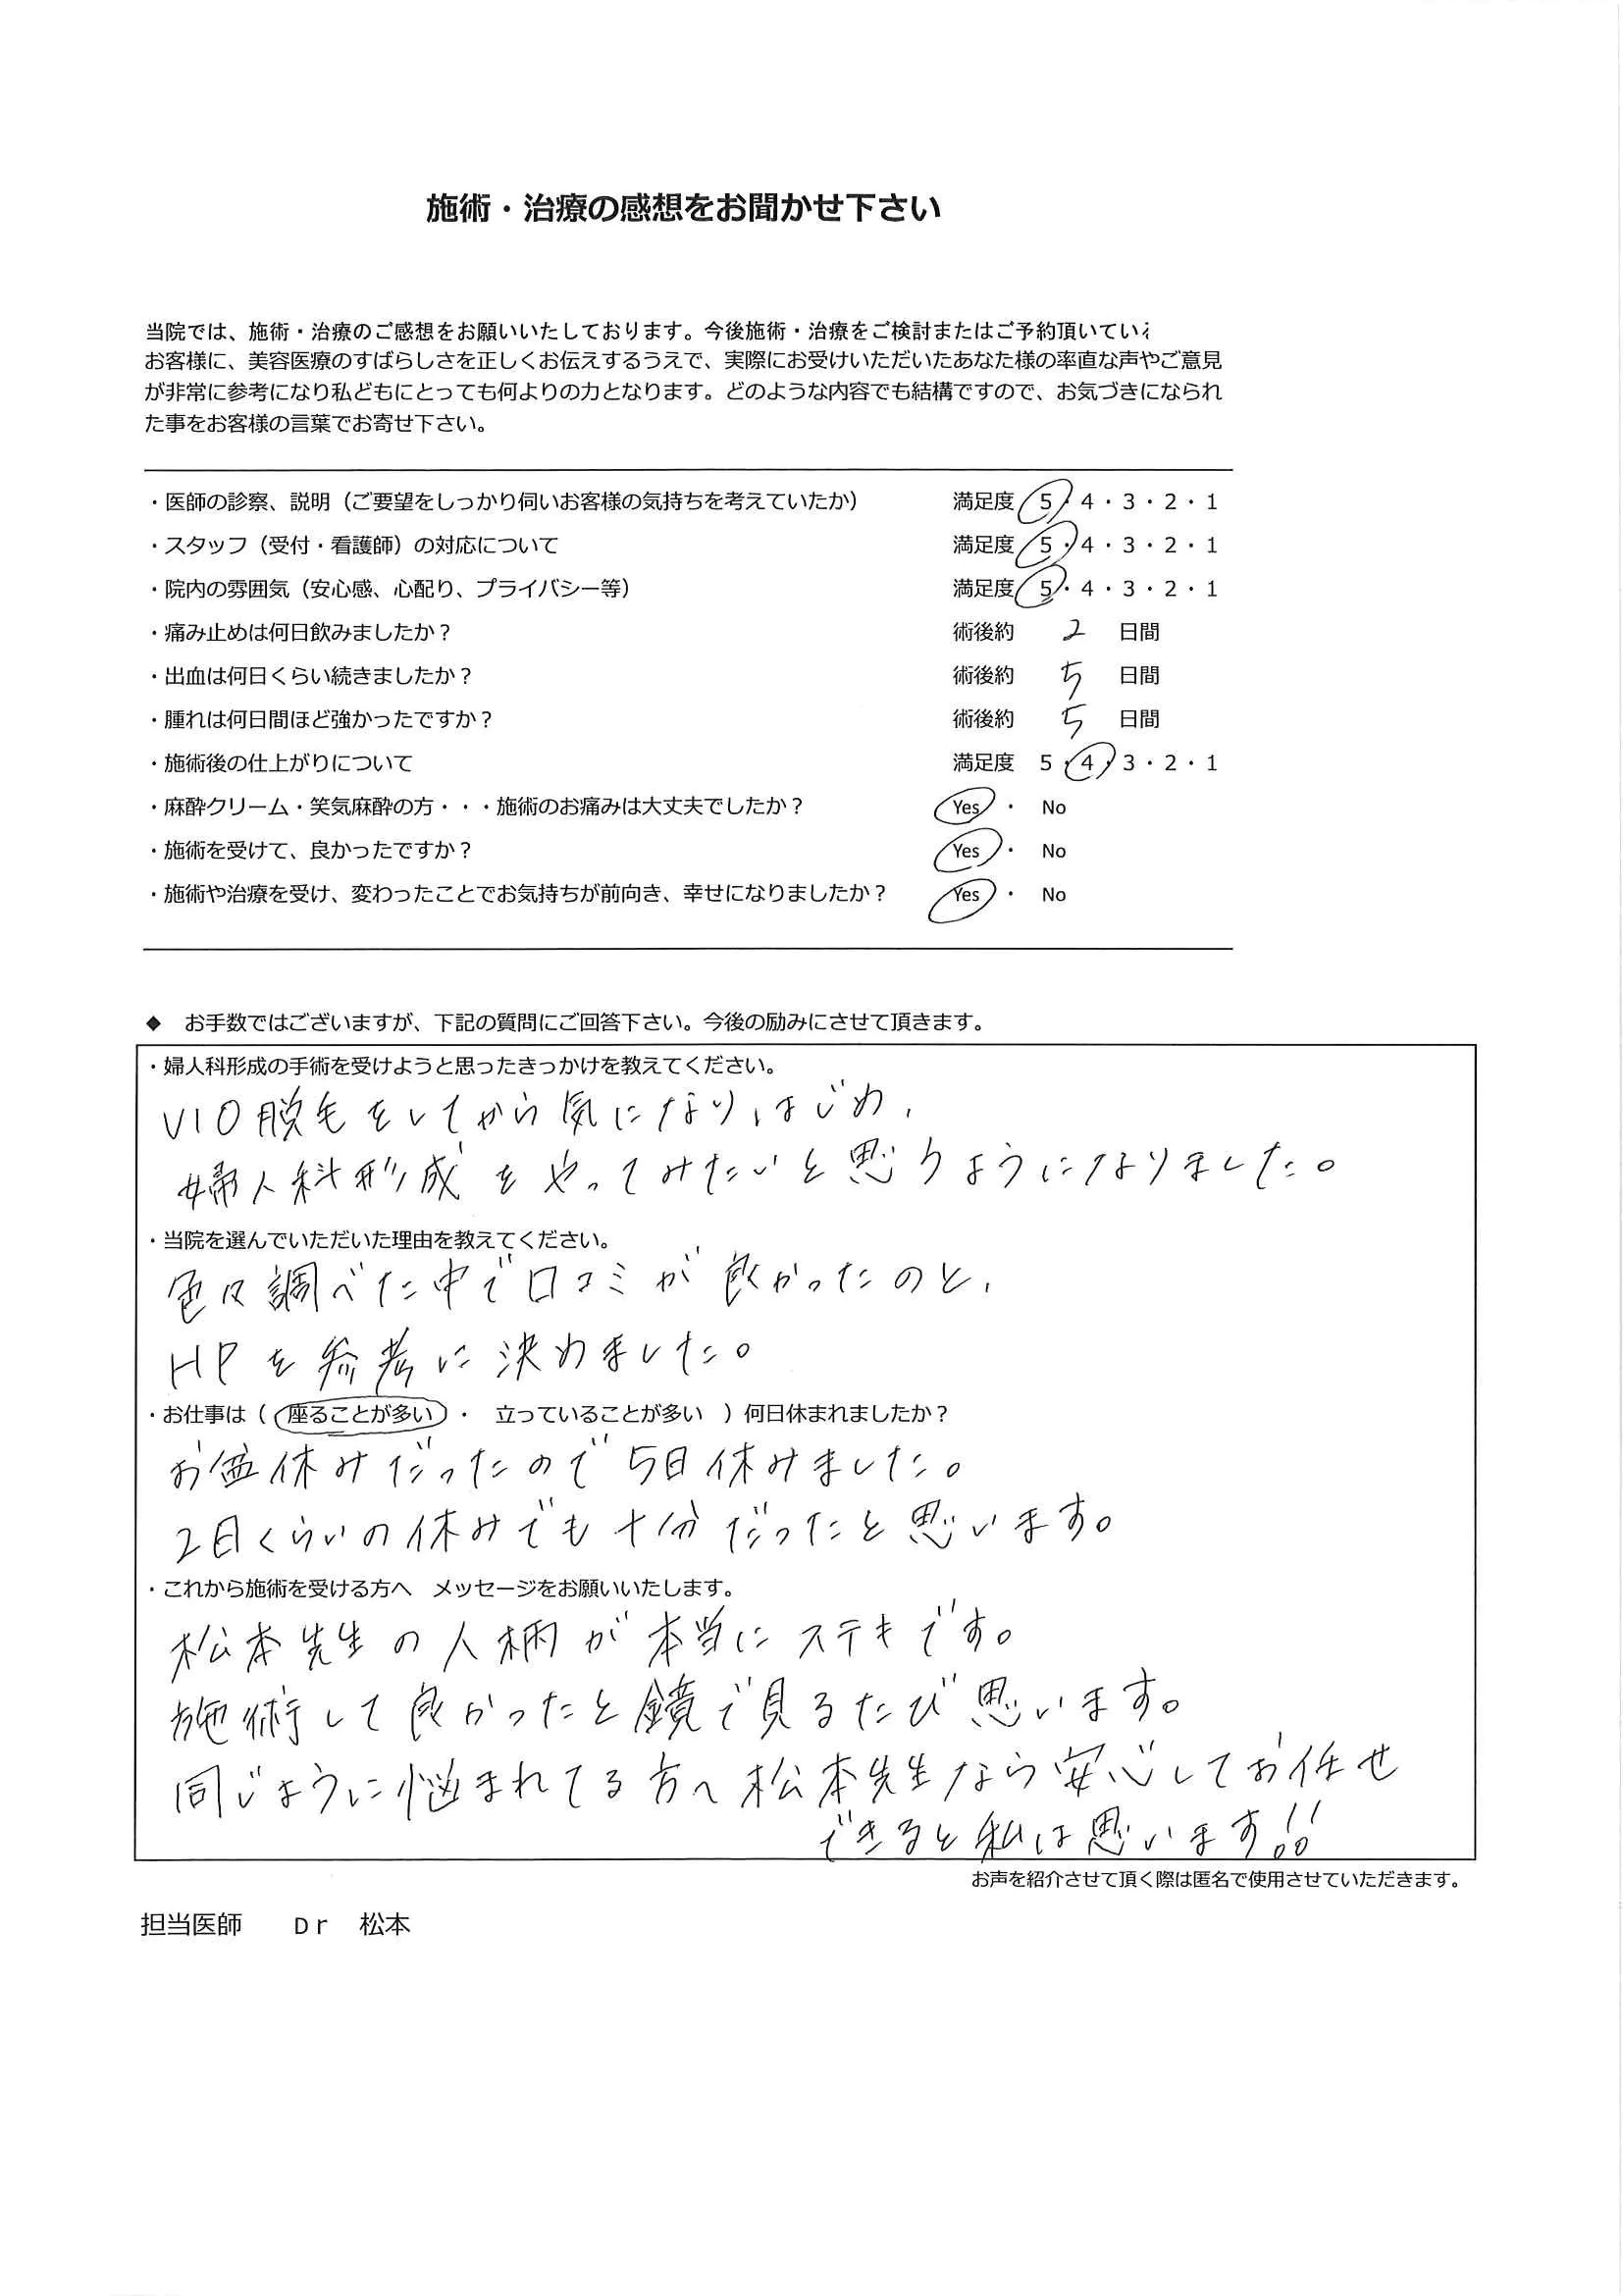 施術・治療の感想をお聞かせ下さい
当院では、施術・治療のご感想をお願いいたしております。今後施術・治療をご検討またはご予約頂いてい
お客様に、美容医療のすばらしさを正しくお伝えするうえで、実際にお受けいただいたあなた様の率直な声やご意見
が非常に参考になり私どもにとっても何よりの力となります。どのような内容でも結構ですので、お気づきになられ
た事をお客様の言葉でお寄せ下さい。
・医師の診察、説明（ご要望をしっかり伺いお客様の気持ちを考えていたか） 満足度 5・4・3・2・1
・スタッフ（受付・看護師）の対応について 満足度 5・4・3・2・1
・院内の雰囲気（安心感、心配り、プライバシー等） 満足度 5・4・3・2・1
・痛み止めは何日飲みましたか？ 術後約 2 日間
・出血は何日くらい続きましたか？ 術後約 5 日間
・腫れは何日間ほど強かったですか？ 術後約 5 日間
・施術後の仕上がりについて 満足度 5・4・3・2・1
・麻酔クリーム・笑気麻酔の方・・・施術のお痛みは大丈夫でしたか？ Yes ・ No
・施術を受けて、良かったですか？ Yes ・ No
・施術や治療を受け、変わったことでお気持ちが前向き、幸せになりましたか？ Yes ・ No
◆ お手数ではございますが、下記の質問にご回答下さい。今後の励みにさせて頂きます。
・婦人科形成の手術を受けようと思ったきっかけを教えてください。
VIO脱毛をしてから気になり、はじめ、
婦人科形成をやってみたいと思うようになりました。
・当院を選んでいただいた理由を教えてください。
色々調べた中で口コミが良かったのと、
HPを参考に決めました。
・お仕事は（ 座ることが多い ・ 立っていることが多い ）何日休まれましたか？
お盆休みだったので5日休みました。
2日くらいの休みでも十分だったと思います。
・これから施術を受ける方へ メッセージをお願いいたします。
松本先生の人柄が本当にステキです。
施術して良かったと鏡で見るたび思います。
同じように悩まれてる方へ松本先生なら安心してお任せ
できると私は思います!!
お声を紹介させて頂く際は匿名で使用させていただきます。
担当医師 Dr 松本